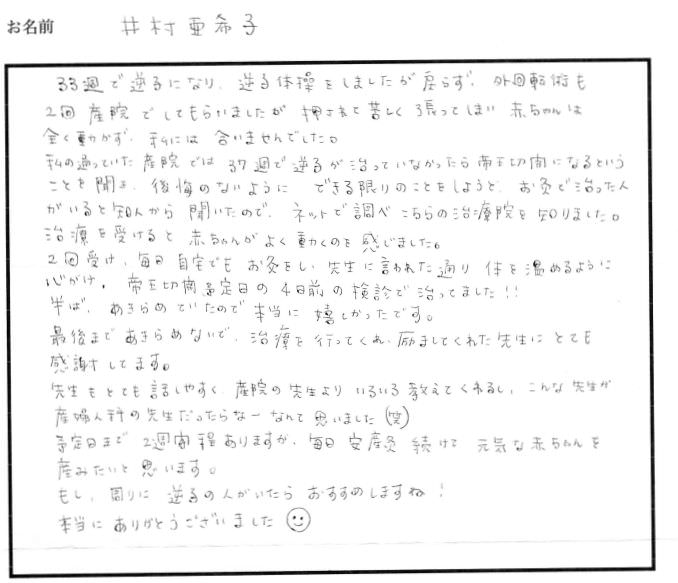 お名前 井村亜希子
33週で逆子になり、逆子体操をしましたが戻らず、外回転術も
2回産院でしてもらいましたが押されて苦しく張ってしまい赤ちゃんは
全く動かず、私には合いませんでした。
私の通っていた産院では37週で逆子が治っていなかったら帝王切開になるという
ことを聞き、後悔のないようにできる限りのことをしようと、お灸で治った人
がいると知人から聞いたので、ネットで調べこちらの治療院を知りました。
治療を受けると赤ちゃんがよく動くのを感じました。
2回受け、毎日自宅でもお灸をし、先生に言われた通り体を温めるように
心がけ、帝王切開予定日の4日前の検診で治ってました!!
半ば、あきらめていたので本当に嬉しかったです。
最後まであきらめないで、治療を行ってくれ、励ましてくれた先生にとても
感謝してます。
先生もとても話しやすく、産院の先生よりいろいろ教えてくれるし、こんな先生が
産婦人科の先生だったらなーなんて思いました(笑)
予定日まで2週間程ありますが、毎日安産灸続けて元気な赤ちゃんを
産みたいと思います。
もし、周りに逆子の人がいたらおすすめしますね!
本当にありがとうございました